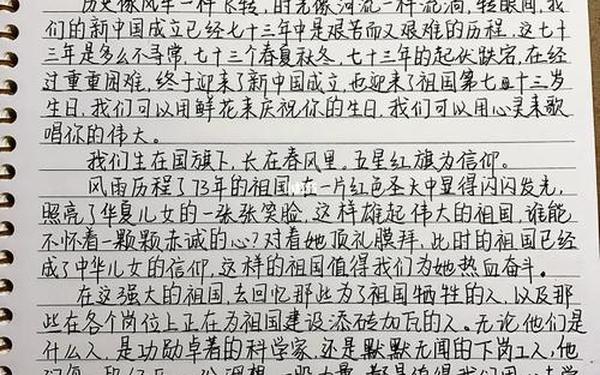 历史像风车一样飞转，时光像河流一样流淌，转眼间，我
们的新中国成立已经七十三年中是艰苦而又艰难的历程，这七十
三年是多么不寻常，七十三个春夏秋冬，七十三年的起伏跌宕，在经
过重重困难，终于迎来了新中国成立，也迎来了祖国第七十三岁
生日，我们可以用鲜花来庆祝你的生日，我们可以用心灵来歌
唱你的伟大。
我们生在国旗下，长在春风里。五星红旗为信仰。
风雨历程了73年的祖国，在一片红色圣天中显得闪闪发光，
照亮了华夏儿女的一张张笑脸，这样雄起伟大的祖国，谁能
不怀着一颗颗赤诚的心？对着她顶礼膜拜，此时的祖国已经
成了中华儿女的信仰，这样的祖国值得我们为她热血奋斗。
在这强大的祖国，去回忆那些为了祖国牺牲的人，以及那
些在各个岗位上正在为祖国建设添砖加瓦的人。无论他们是
什么人，是功勋卓著的科学家，还是默默无闻的下岗工人，他